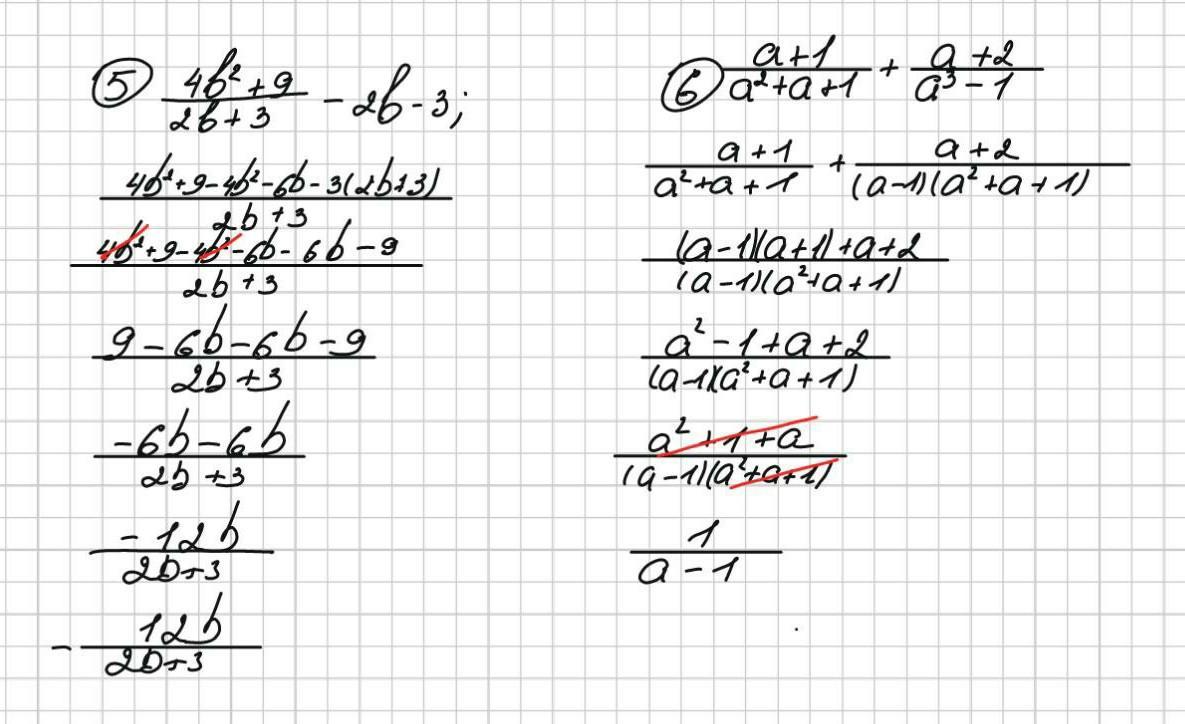 ⑤ (4b²+9)/(2b+3) - 2b-3;
(4b²+9-4b²-6b-3(2b+3))/(2b+3)
(4b²+9-4b²-6b-6b-9)/(2b+3)
(9-6b-6b-9)/(2b+3)
(-6b-6b)/(2b+3)
(-12b)/(2b+3)
-(12b)/(2b+3)
⑥ (a+1)/(a²+a+1) + (a+2)/(a³-1)
(a+1)/(a²+a+1) + (a+2)/((a-1)(a²+a+1))
((a-1)(a+1)+a+2)/((a-1)(a²+a+1))
(a²-1+a+2)/((a-1)(a²+a+1))
(a²+1+a)/((a-1)(a²+a+1))
1/(a-1)